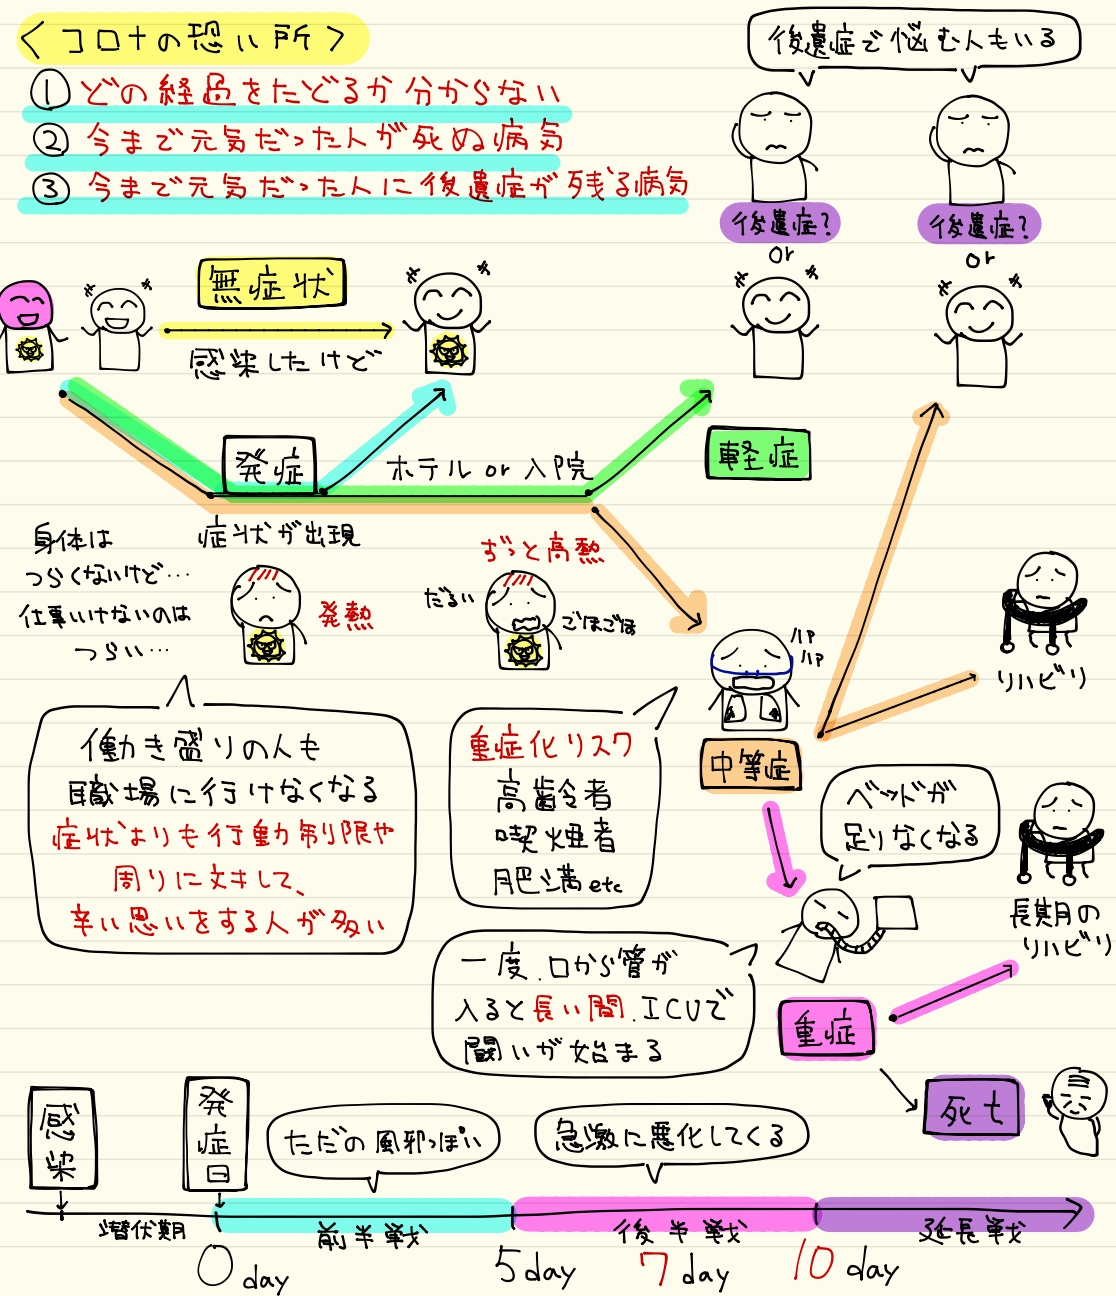 ＜コロナの恐い所＞
① どの経過をたどるか分からない
② 今まで元気だった人が死ぬ病気
③ 今まで元気だった人に後遺症が残る病気
後遺症で悩む人もいる
後遺症?
or
後遺症?
or
無症状
感染したけど
発症
ホテル or 入院
軽症
症状が出現
身体は
つらくないけど…
仕事いけないのは
つらい…
発熱
ずっと高熱
だるい
ごほごほ
ハァ
ハァ
リハビリ
働き盛りの人も
職場に行けなくなる
症状よりも行動制限や
周りに対して、
辛い思いをする人が多い
重症化リスク
高齢者
喫煙者
肥満 etc
中等症
ベッドが
足りなくなる
長期の
リハビリ
一度、口から管が
入ると長い間、ICUで
闘いが始まる
重症
死亡
感染
発症日
ただの風邪っぽい
急激に悪化してくる
潜伏期
前半戦
後半戦
延長戦
0 day
5 day
7 day
10 day